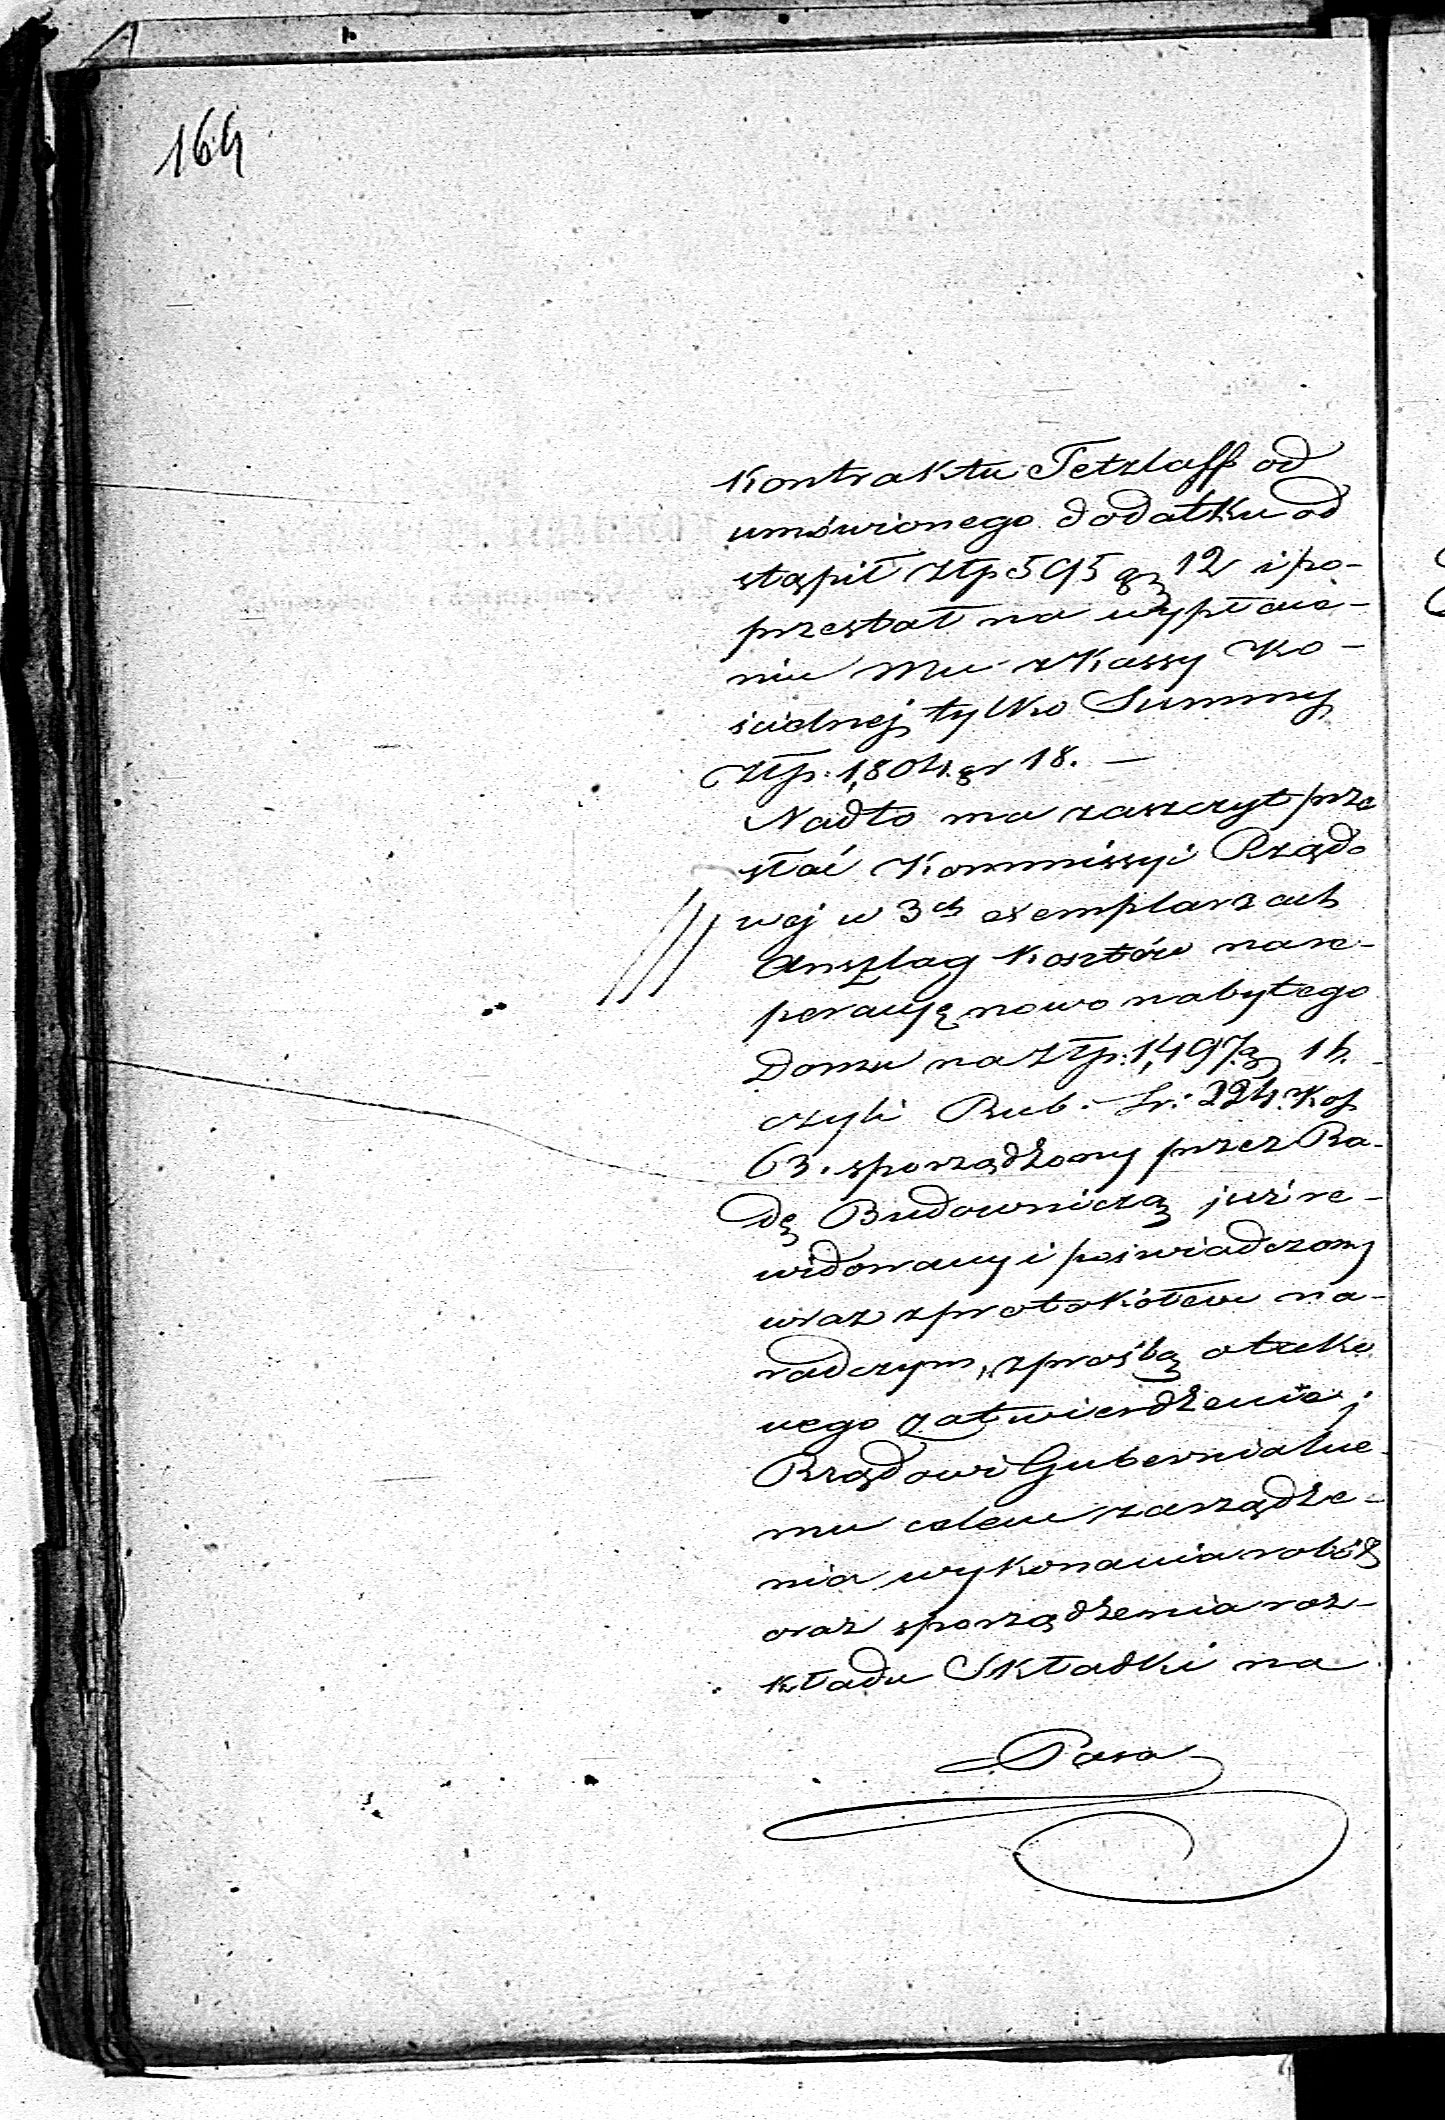 164
Kontraktu Tetzlaff od
umówionego dodatku od
stąpił złp 595 gr 12 i po-
przestał na wypłace-
niu mu z Kassy Ko-
ścielnej tylko Summy
złp. 1,804. gr 18. —
Nadto ma zaszczyt prze
słać Kommissyi Rządo
wej w 3ch exemplarzach
Anszlag Kosztów na re-
peracyę nowo nabytego
Domu na złp. 1,497. gr
czyli Rub. Sr. 224. Kop
63. sporządzony przez Ra-
dę Budowniczą już re-
widowany i poświadczony
wraz z protokółem na-
radczym, z prośbą o
nego zatwierdzenie i
Rządowi Gubernialne-
mu celem zarządze-
nia wykonania robót
oraz sporządzenia roz-
kładu Składki na
Para